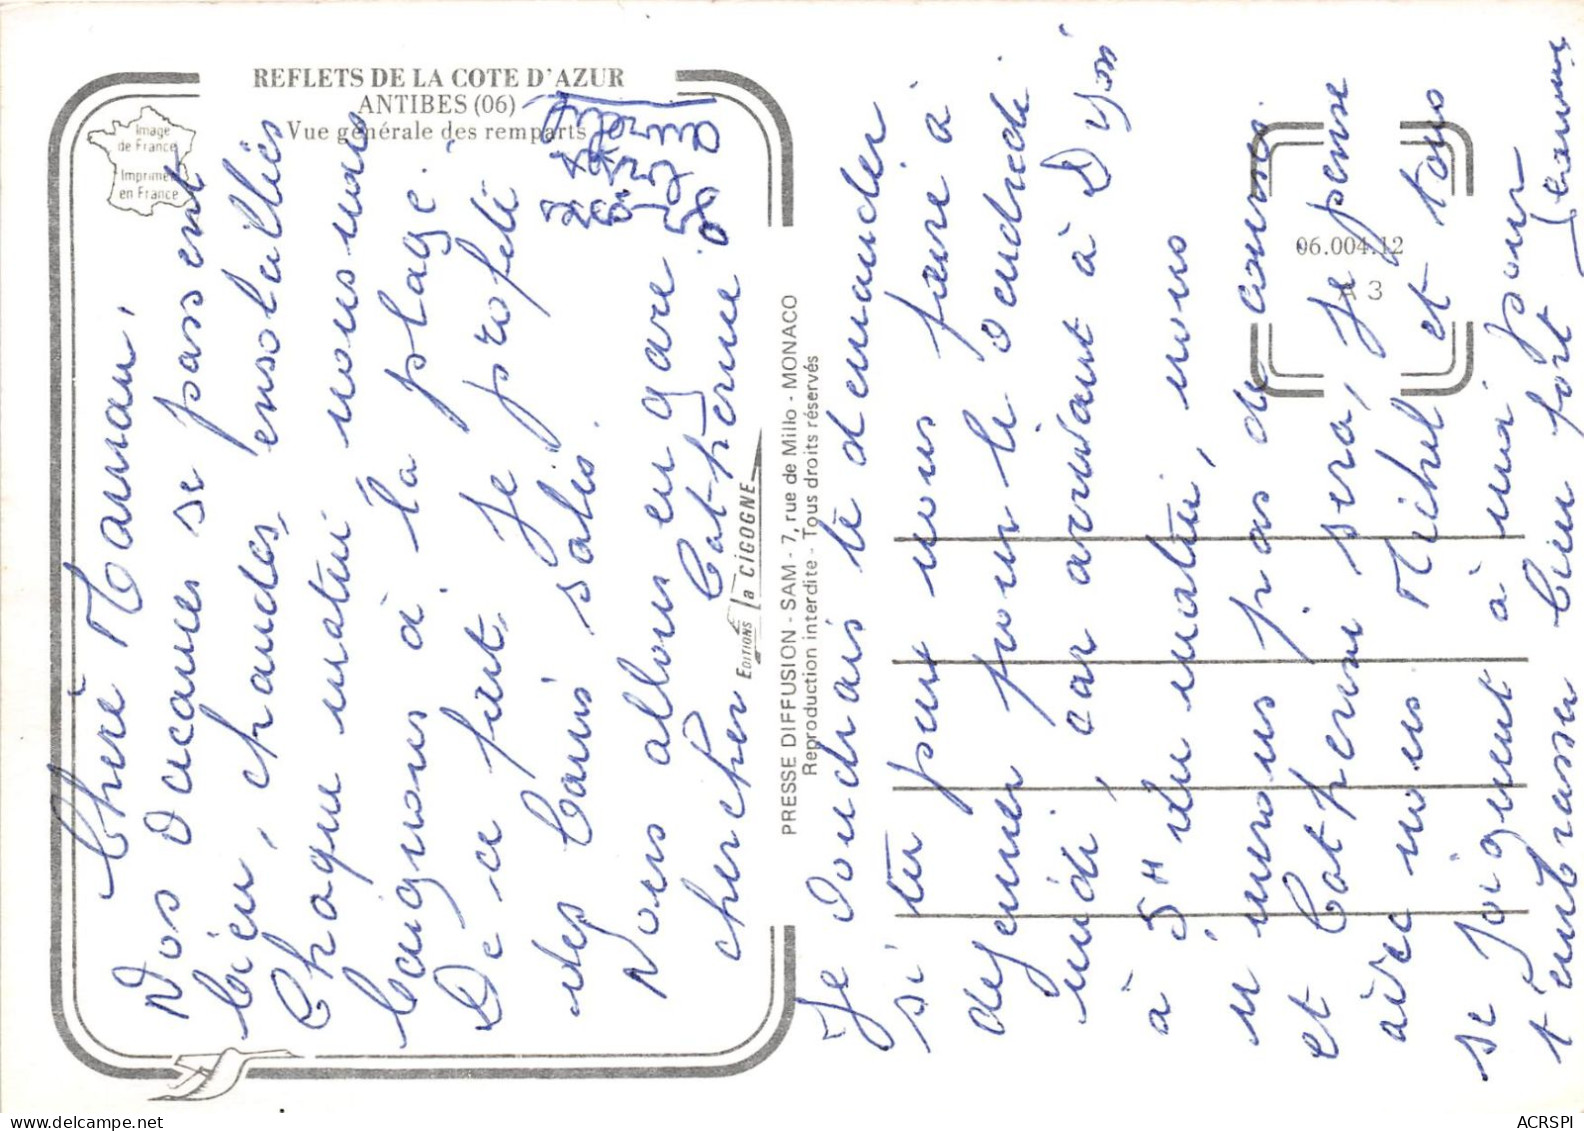 REFLETS DE LA COTE D'AZUR
ANTIBES (06)
Vue générale des remparts
Image
de France
Imprimée
en France
Chère Maman,
Nos vacances se passent
bien, chaudes, ensoleillées
Chaque matin nous nous
baignons à la plage.
De ce fait, je profite
des bains salés.
Nous allons en gare
chercher Catherine
EDITIONS la CIGOGNE
PRESSE DIFFUSION - SAM - 7, rue de Millo - MONACO
Reproduction interdite - Tous droits réservés
06.004.12
A 3
Je voudrais te demander
si tu peux nous faire à
dejeuner pour le vendredi
midi, car arrivant à Dijon
à 5H du matin, nous
n'aurons pas de courses
et Catherine sera, je pense
avec nous Michel et tous
se joignent à moi pour
t'embrasser bien fort
ACRSPI